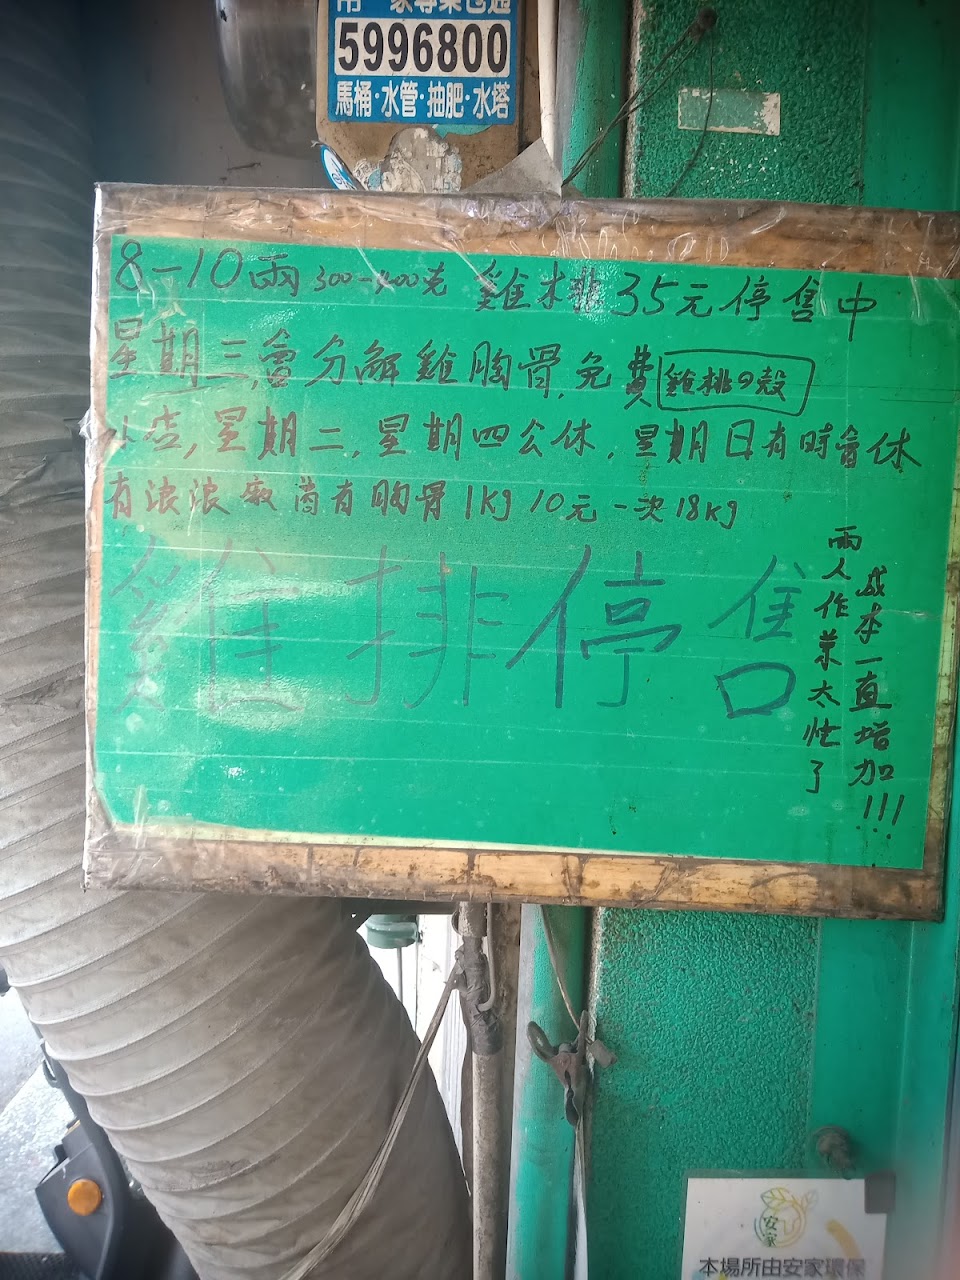 5996800
馬桶·水管·抽肥·水塔
8-10兩 300-400克 雞排35元停售中
星期三,會分解雞胸骨,免費 雞排の殼
本店,星期二,星期四公休,星期日有時會休
有浪浪廠商有胸骨1Kg 10元一次18Kg
雞排停售
兩人作業太忙了
成本一直增加!!!
安家
本場所由安家環保